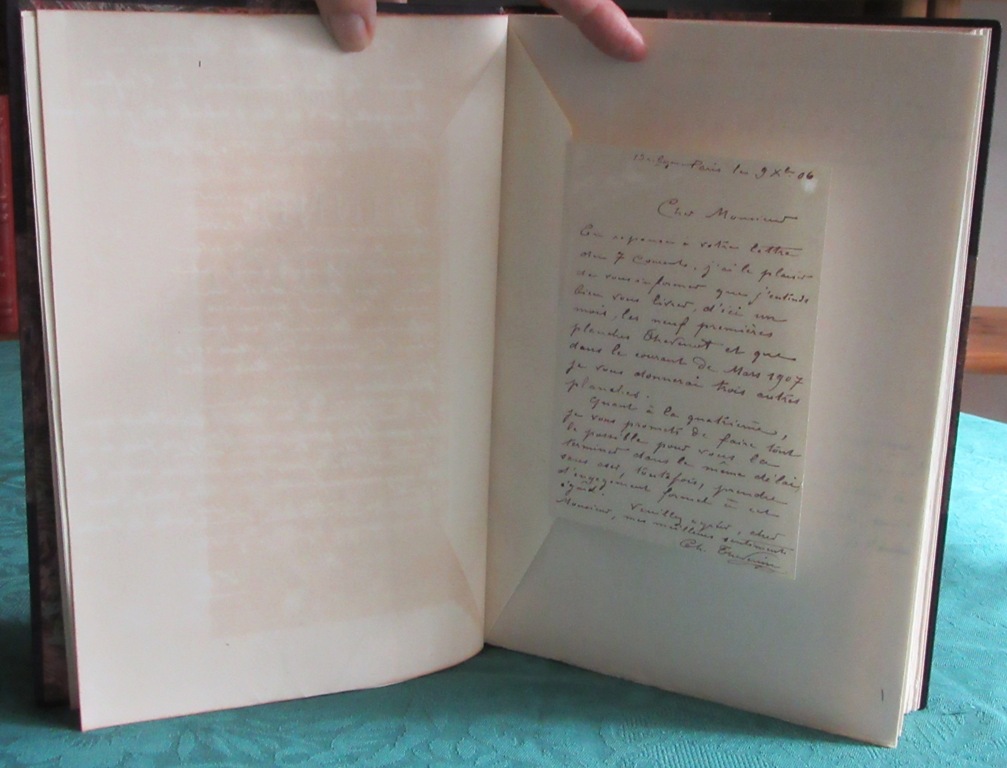 Paris le 9 Xbre 06
Cher Monsieur
En reponse à votre lettre
du 7 Courant, j'ai le plaisir
de vous informer que j'entends
bien vous livrer, d'ici un
mois, les neuf premières
planches Thevenot et que
dans le courant de Mars 1907
je vous donnerai trois autres
planches.
Quant à la quatrième,
je vous promets de faire tout
le possible pour vous la
terminer dans le même délai,
sans oser, toutefois, prendre
d'engagement formel à cet
égard.
Veuillez agréer, cher
Monsieur, mes meilleurs sentiments
Ch.